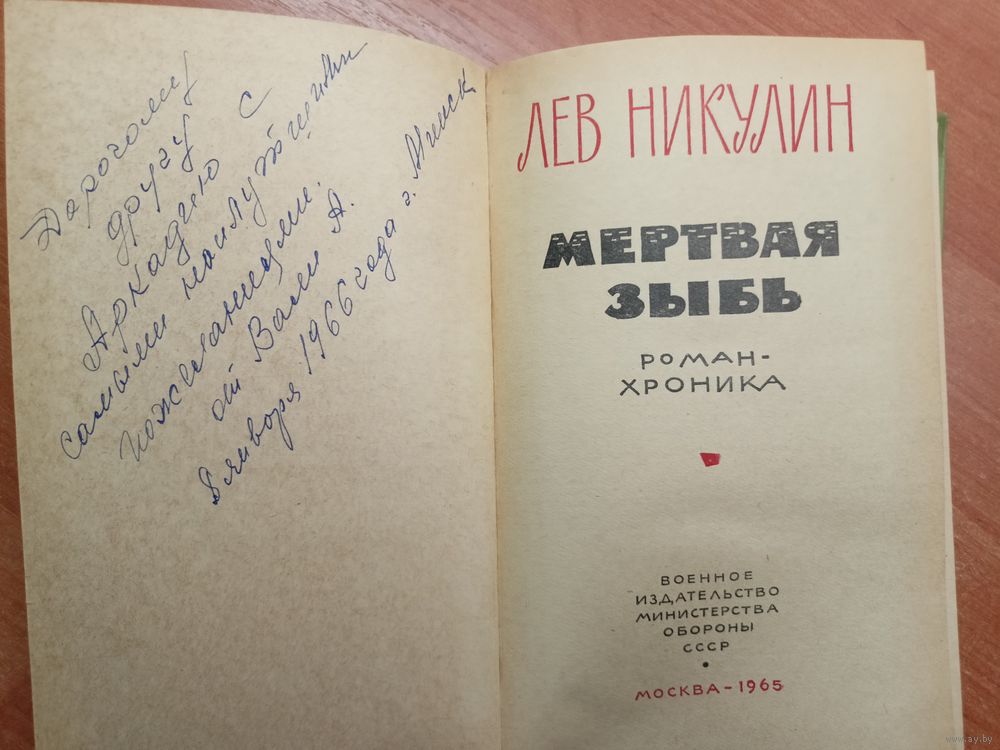 Дорогому
другу
Аркадию с
самыми наилучшими
пожеланиями.
от Вали А.
8 января 1966 года г. Минск
ЛЕВ НИКУЛИН
МЕРТВАЯ
ЗЫБЬ
РОМАН-
ХРОНИКА
ВОЕННОЕ
ИЗДАТЕЛЬСТВО
МИНИСТЕРСТВА
ОБОРОНЫ
СССР
МОСКВА-1965
www.ay.by